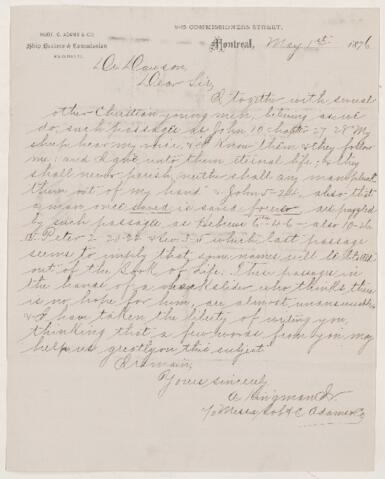 ROBT. C. ADAMS & CO.
Ship Business & Commission
COMMISSIONERS STREET,
Montreal, May 1st 1876
Dr Dawson
Dear Sir,
I together with several
other Christian young men, believing as we
do, such passages as John 10 chapter 27 28 My
sheep hear my voice & I Know them & they follow
me: and I give unto them eternal life; & they
shall never perish, neither shall any man pluck
them out of my hand & John 5-24. also that
a man once saved is saved forever are puzzled
by such passage as Hebrews 6th 4-6 - also 10-26
Peter 2 Rev 3-5 which last passage
seems to imply that some names will be blotted
out of the Book of Life. These passages in
the hands of a backslider who thinks there
is no hope for him, are almost unanswerable
& I have taken the liberty of writing you,
thinking that a few words from you may
help us greatly on this subject
I remain,
Yours sincerely
A Kingman Jr
c/o Messrs Robt C Adams & Co